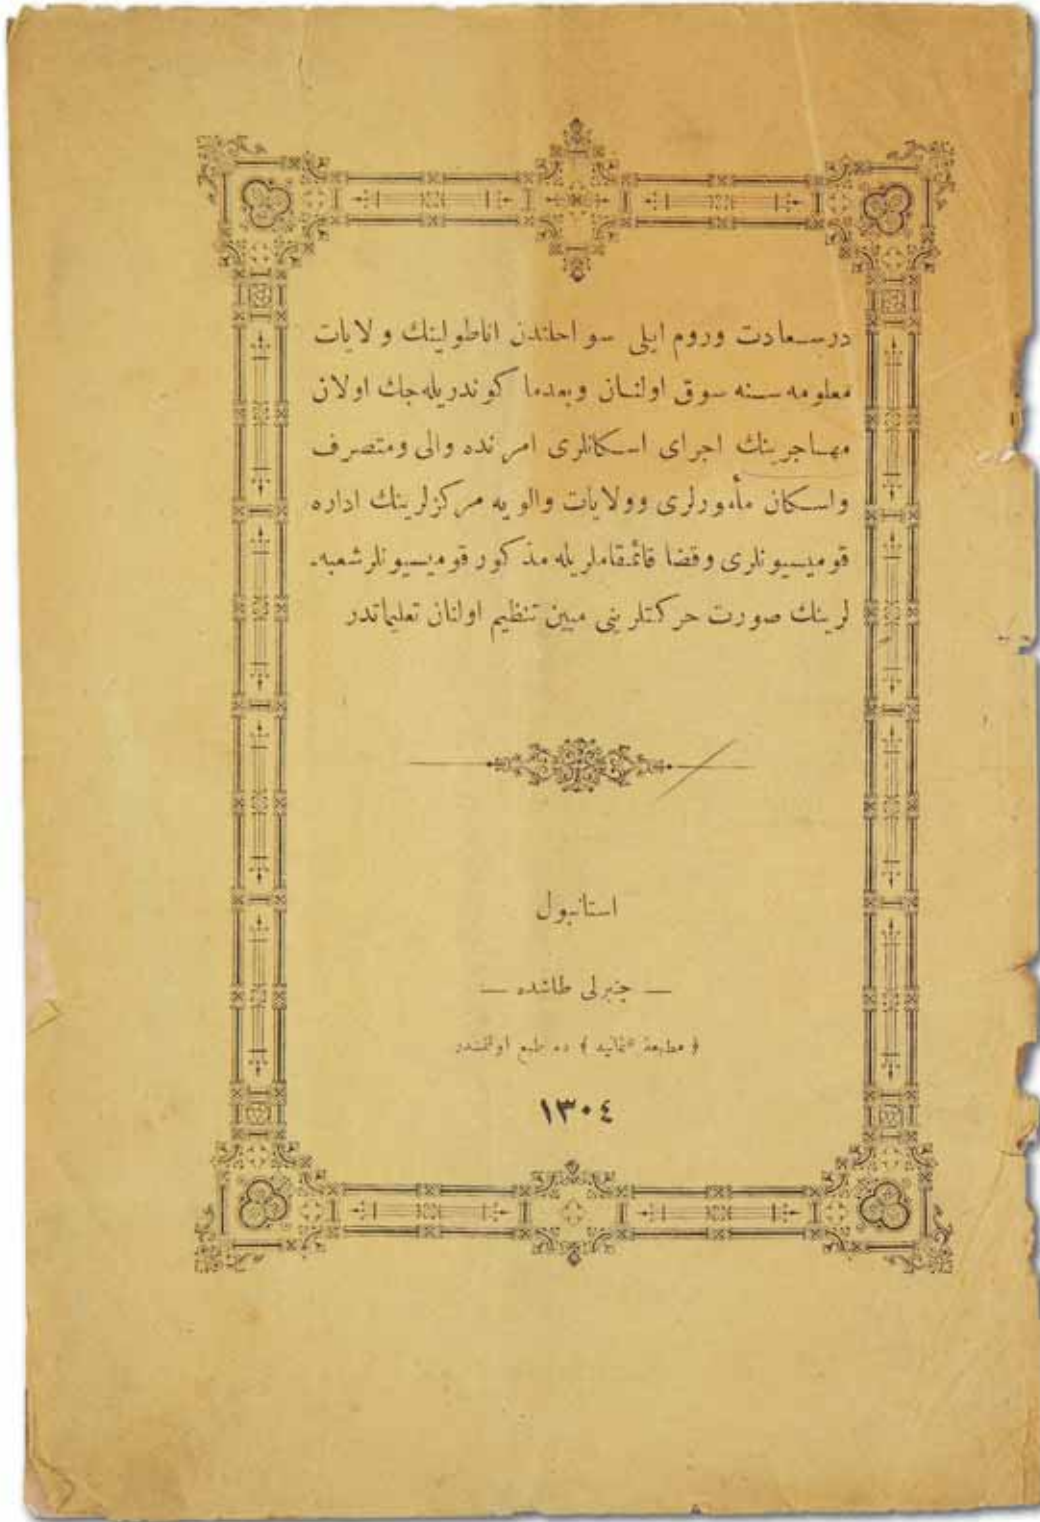 درسعادت وروم ایلی سواحلندن اناطولینك ولایات
معلومه سنه سوق اولنان وبعدما كوندریله‌جك اولان
مهاجرینك اجرای اسكانلری امرنده والی ومتصرف
واسكان مأمورلری وولایات والویه مركزلرینك اداره
قومیسیونلری وقضا قائمقاملریله مذكور قومیسیونلر شعبه‌ـ
لرینك صورت حركتلرینی مبین تنظیم اولنان تعلیماتدر
استانبول
— جنبرلی طاشده —
﴿ مطبعهٔ عثمانیه ﴾ ده طبع اولنمشدر
١٣٠٤